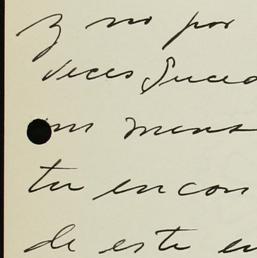 y no por
veces Suced
un mens
tu encon
de este en